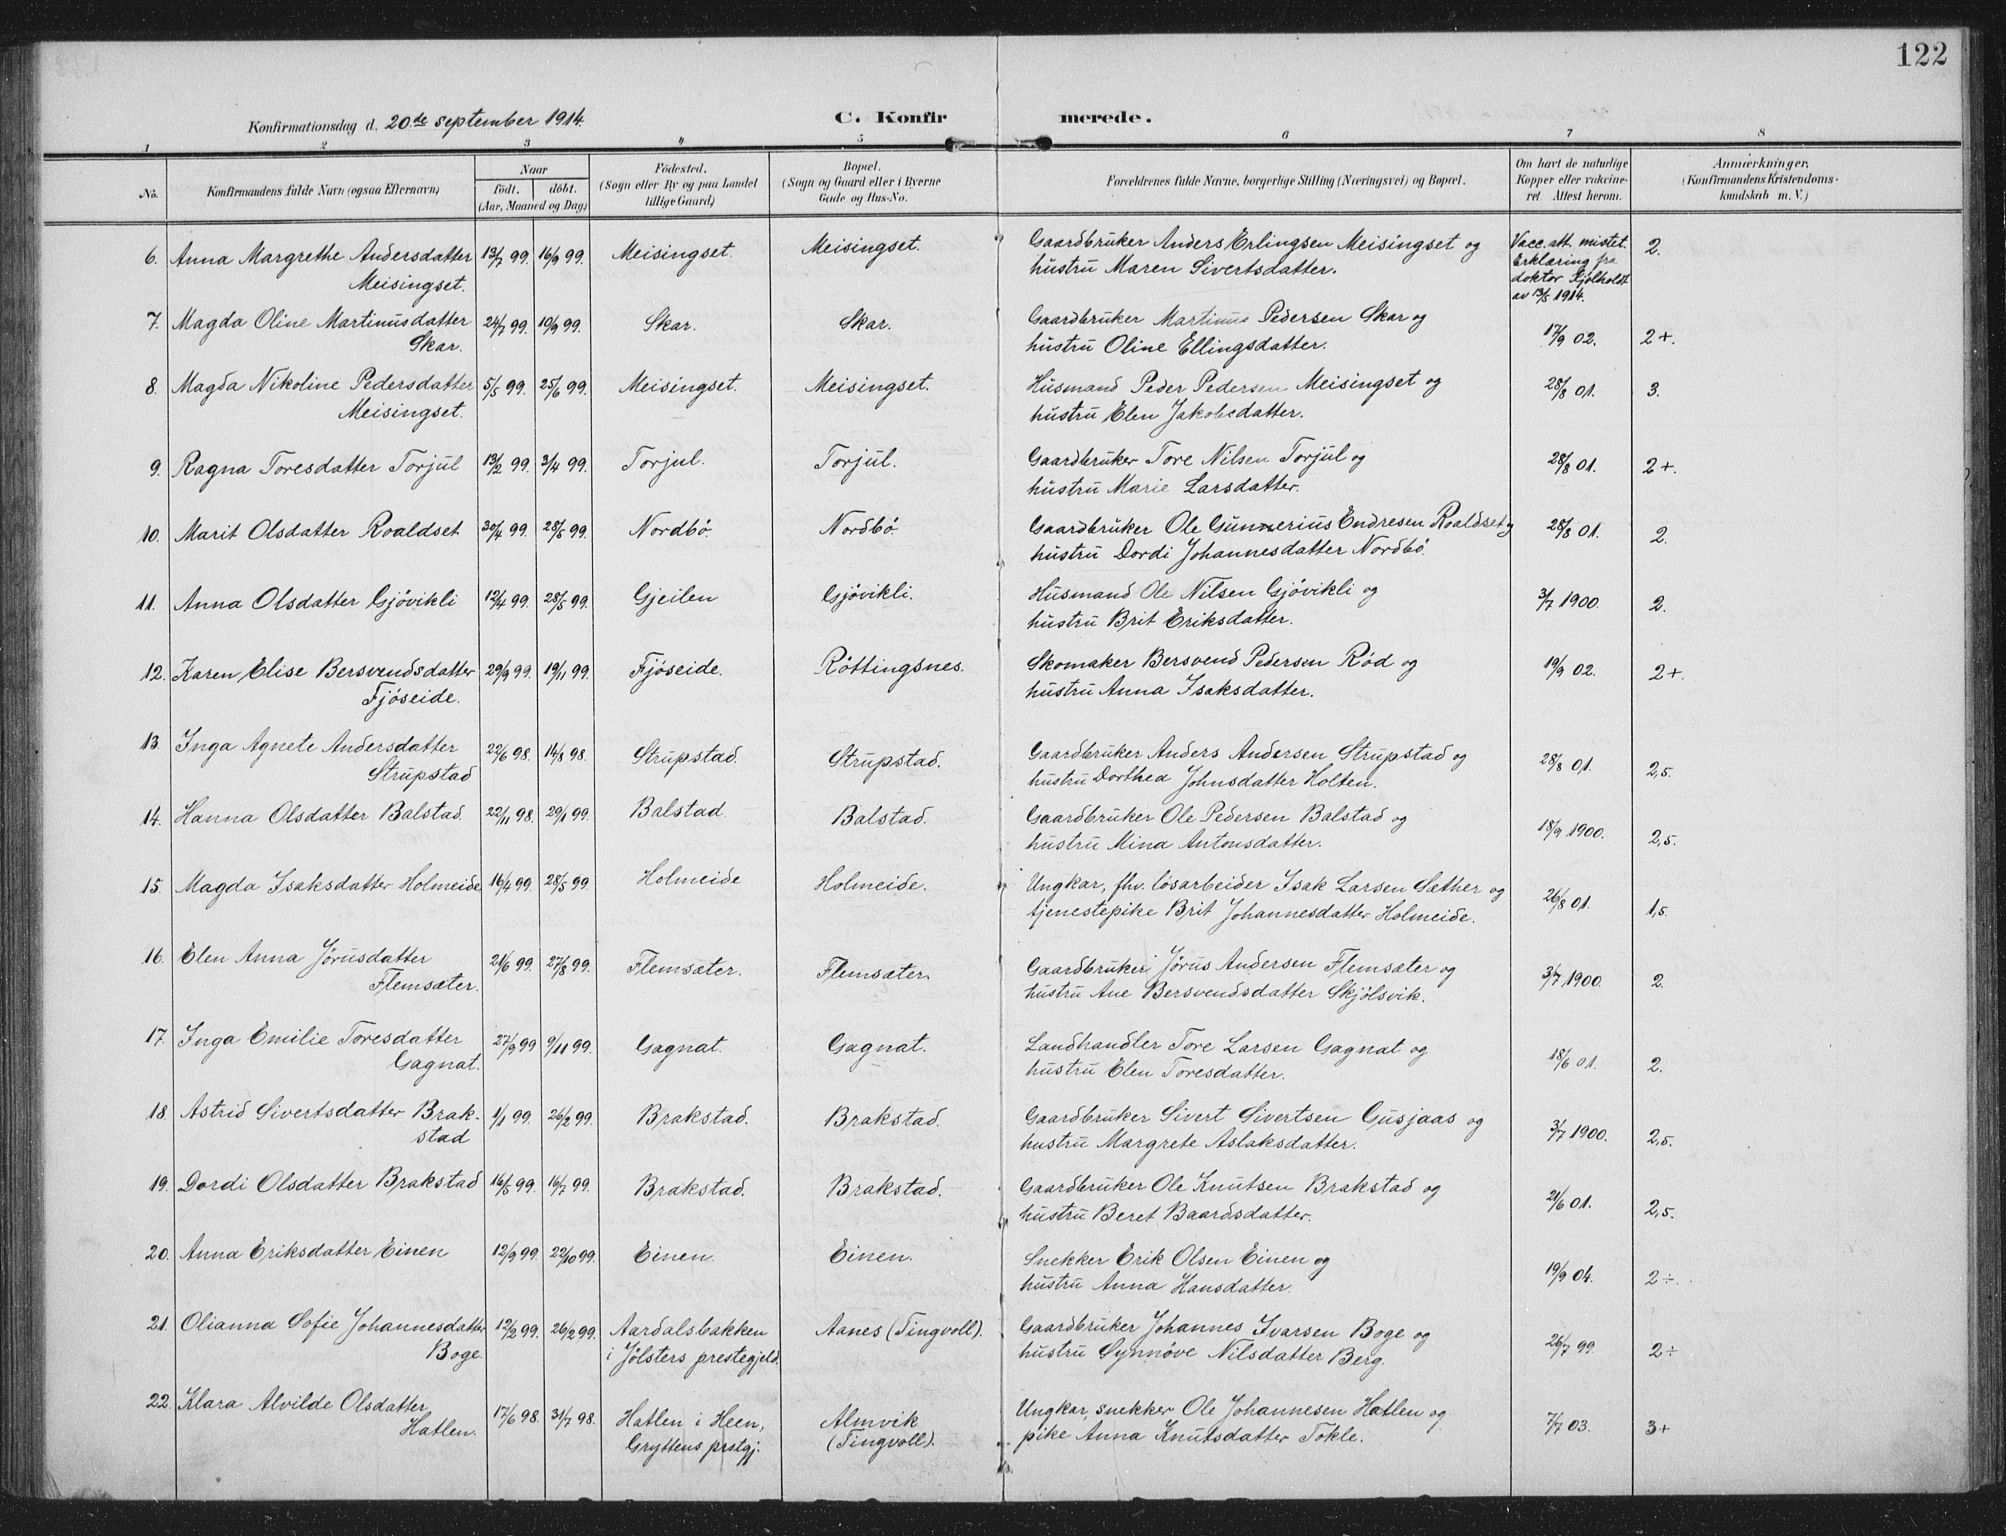 122
Konfirmationsdag d. 20de september 1914. C. Konfirmerede.
1 2 3 4 5 6 7 8
No. Konfirmandens fulde Navn (ogsaa Efternavn) Naar født. døbt. (Aar, Maaned og Dag) Fødested. (Sogn eller By og paa Landet tillige Gaard) Bopæl. (Sogn og Gaard eller i Byerne Gade og Hus-No. Forældrenes fulde Navne, borgerlige Stilling (Næringsvei) og Bopæl. Om havt de naturlige Kopper eller vakcineret Attest herom. Anmærkninger, (Konfirmandens Kristendomskundskab m. V.)
6. Anna Margrethe Andersdatter 13/7 99. 16/9 99. Meisingset. Meisingset. Gaardbruker Anders Erlingsen Meisingset og Vacc. att. mistet. 2.
Meisingset. hustru Maren Sivertsdatter. Erklæring fra
doktor Kjølholdt
av 13/5 1914.
7. Magda Oline Martinusdatter 24/7 99. 10/9 99. Skar. Skar. Gaardbruker Martinus Pedersen Skar og 17/9 02. 2+.
Skar. hustru Oline Ellingsdatter.
8. Magda Nikoline Pedersdatter 5/5 99. 25/6 99. Meisingset. Meisingset. Husmand Peder Pedersen Meisingset og 28/8 01. 3.
Meisingset. hustru Elen Jakobsdatter.
9. Ragna Toresdatter Torjul 13/2 99. 3/4 99. Torjul. Torjul. Gaardbruker Tore Nilsen Torjul og 28/8 01. 2+.
hustru Marie Larsdatter.
10. Marit Olsdatter Roaldset 30/4 99. 28/5 99. Nordbø. Nordbø. Gaardbruker Ole Gunnerius Endresen Roaldset og 28/8 01. 2.
hustru Dordi Johannesdatter Nordbø.
11. Anna Olsdatter Gjøvikli 12/4 99. 28/5 99. Gjeilen Gjøvikli. Husmand Ole Nilsen Gjøvikli og 3/7 1900. 2.
hustru Brit Eriksdatter.
12. Karen Elise Bersvendsdatter 29/9 99. 19/11 99. Fjøseide. Røttingsnes. Skomaker Bersvend Pedersen Rød og 19/9 02. 2+.
Fjøseide. hustru Anna Isaksdatter.
13. Inga Agnete Andersdatter 22/6 98. 14/8 98. Strupstad. Strupstad. Gaardbruker Anders Andersen Strupstad og 28/8 01. 2,5.
Strupstad hustru Dorthea Johnsdatter Holten.
14. Hanna Olsdatter Balstad. 22/11 98. 29/1 99. Balstad Balstad. Gaardbruker Ole Pedersen Balstad og 18/9 1900. 2,5.
hustru Mina Antonsdatter.
15. Magda Isaksdatter Holmeide 16/4 99. 28/5 99. Holmeide Holmeide. Ungkar, fhv. løsarbeider Isak Larsen Sæther og 26/8 01. 1,5.
tjenestepike Brit Johannesdatter Holmeide.
16. Elen Anna Jørusdatter 21/6 99. 27/8 99. Flemsæter. Flemsæter. Gaardbruker Jørus Andersen Flemsæter og 3/7 1900. 2.
Flemsæter. hustru Ane Bersvendsdatter Skjølsvik.
17. Inga Emilie Toresdatter 27/9 99 9/11 99. Gagnat. Gagnat. Landhandler Tore Larsen Gagnat og 18/6 01. 2.
Gagnat. hustru Elen Toresdatter.
18. Astrid Sivertsdatter Brak- 1/1 99. 26/2 99. Brakstad. Brakstad. Gaardbruker Sivert Sivertsen Gusjaas og 3/7 1900. 2,5.
stad hustru Margrete Aslaksdatter.
19. Dordi Olsdatter Brakstad 16/5 99. 16/7 99. Brakstad. Brakstad. Gaardbruker Ole Knutsen Brakstad og 21/6 01. 2,5.
hustru Beret Baardsdatter.
20. Anna Eriksdatter Einen 12/9 99. 22/10 99. Einen. Einen. Snekker Erik Olsen Einen og 19/9 04. 2÷.
hustru Anna Hansdatter.
21. Olianna Sofie Johannesdatter 12/2 99. 26/2 99. Aardalsbakken Aanes (Tingvoll). Gaardbruker Johannes Ivarsen Boge og 26/7 99. 2÷
Boge. i Jølsters prestegjeld. hustru Synnøve Nilsdatter Berg.
22. Klara Alvilde Olsdatter 17/6 98. 31/7 98. Hatlen i Heen, Almvik Ungkar, snekker Ole Johannesen Hatlen og 7/7 03. 3+
Hatlen. Gryttens prstgj. (Tingvoll). pike Anna Knutsdatter Tokle.